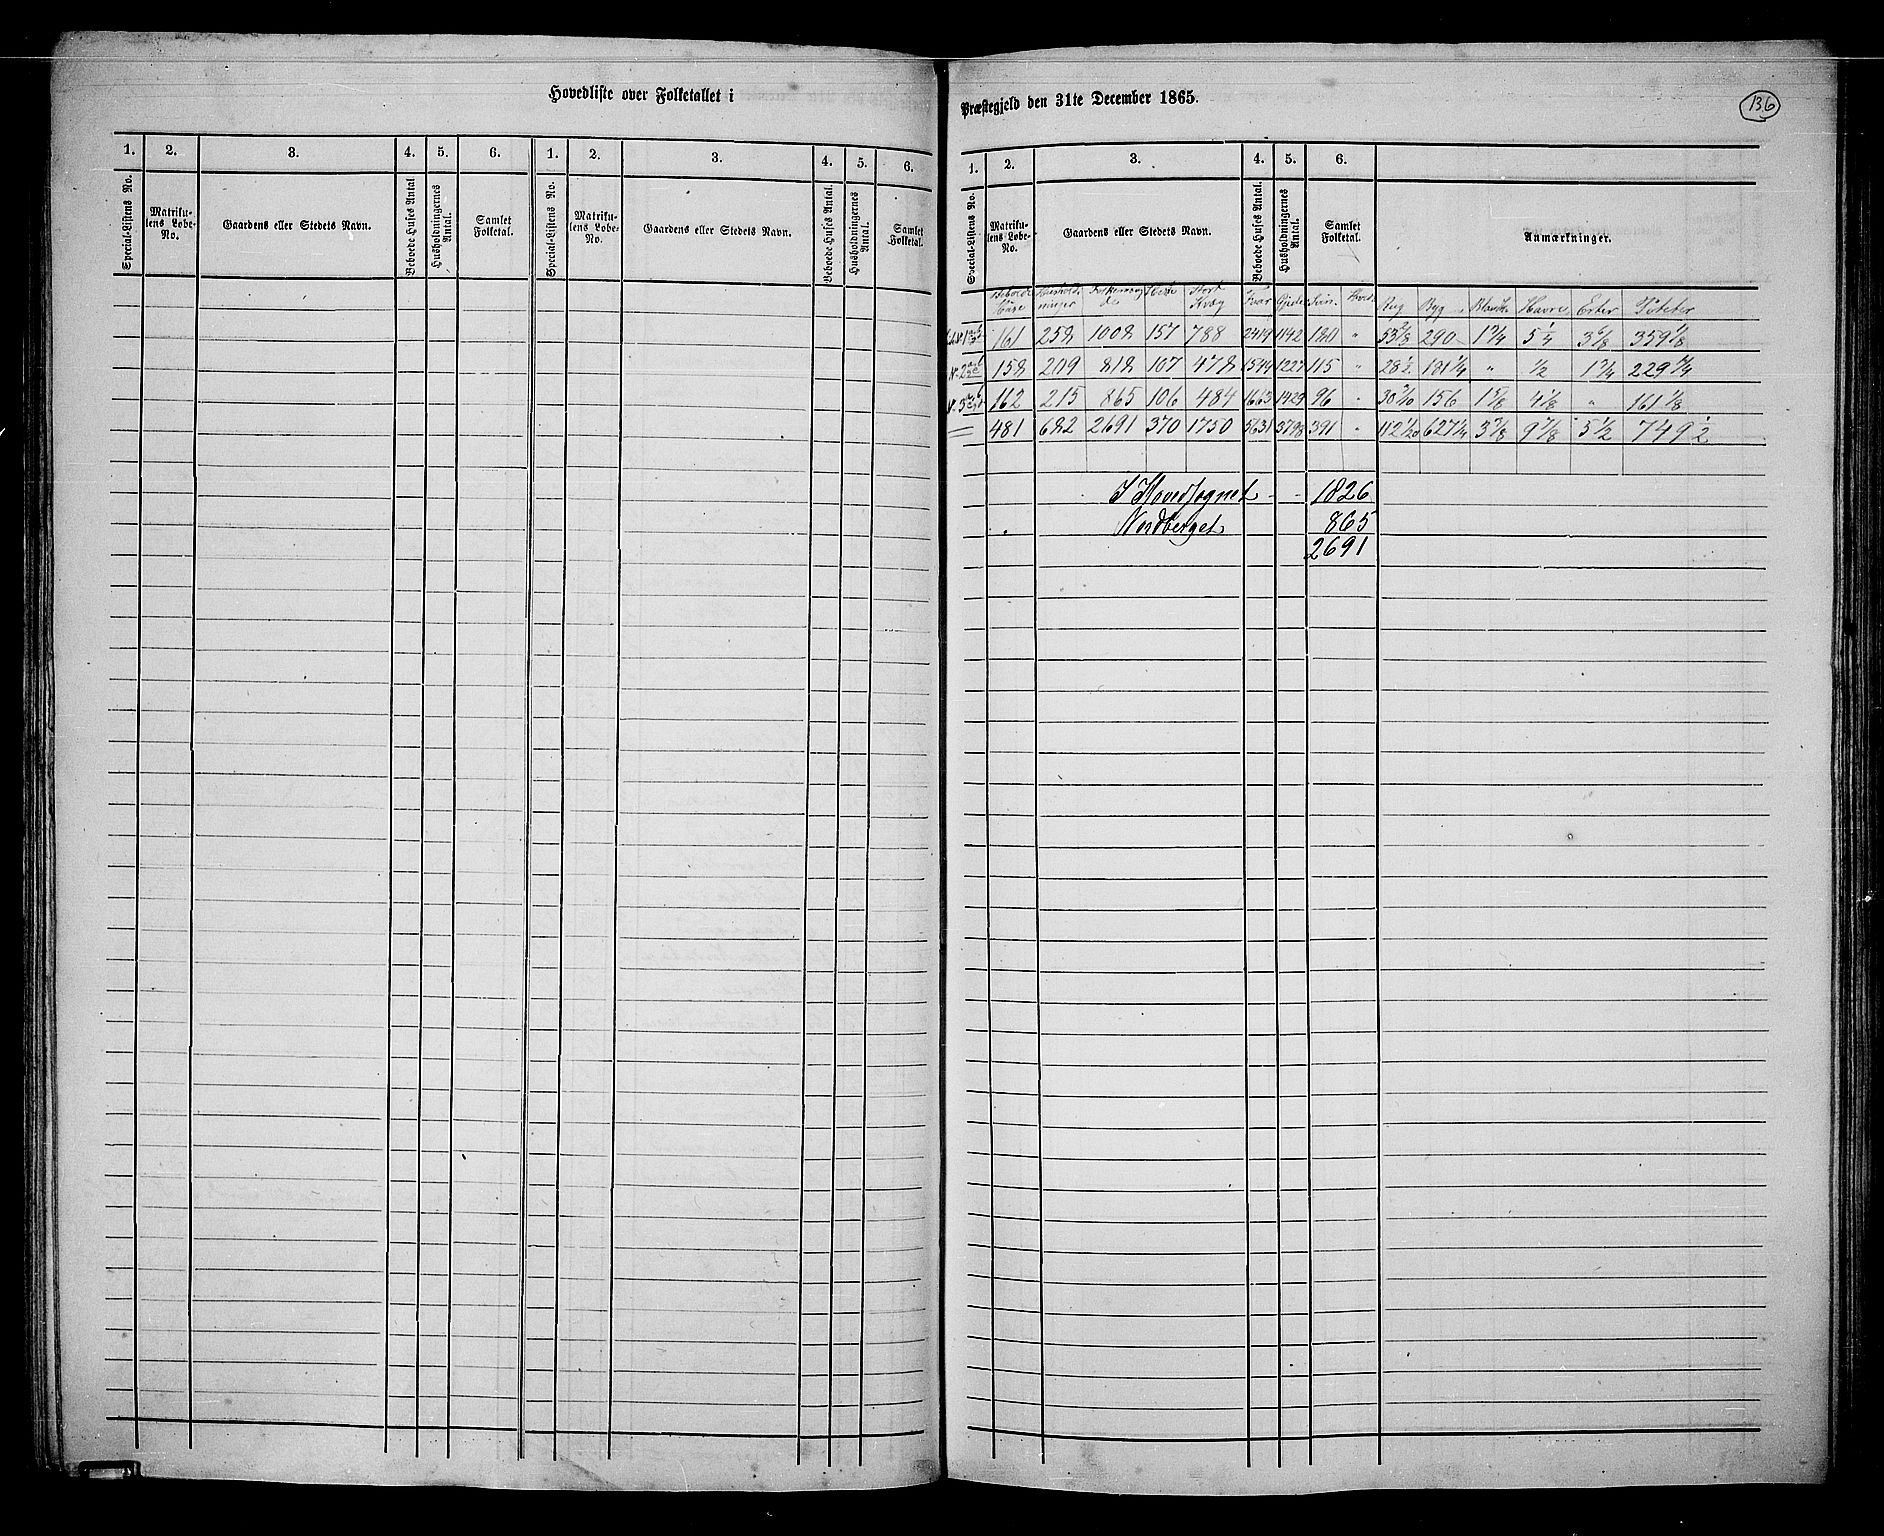 Hovedliste over Folketallet i
Præstegjeld den 31te December 1865.
136
1. 2. 3. 4. 5. 6. 1. 2. 3. 4. 5. 6.
Special-Listens No. Matrikulens Løbe-No. Gaardens eller Stedets Navn. Beboede Huses Antal Husholdningernes Antal. Samlet Folketal. Special-Listens No. Matrikulens Løbe-No. Gaardens eller Stedets Navn. Beboede Huses Antal. Husholdningernes Antal. Samlet Folketal.
1. 2. 3. 4. 5. 6.
Special-Listens No. Matrikulens Løbe-No. Gaardens eller Stedets Navn. Beboede Huses Antal. Husholdningernes Antal. Samlet Folketal. Anmærkninger.
Heste Stort Kvæg Faar Gjeder Svin Hvede Rug Byg Havre Erter Poteter
161 252 1002 157 788 2419 1142 180 " 290 1 3/4 5 1/4 359 1/8
No 2 158 209 818 107 478 1549 1227 115 " 181 1/4 " 1/2 1 3/4 229 1/4
162 215 865 106 484 1663 1429 96 " 156 4 1/8 " 161 1/8
481 682 2691 370 1750 5631 3798 391 " 112 1/20 627 1/4 3 3/8 9 7/8 5 1/2 749 1/2
I Hovedsognet - - 1826
Nordberget 865
2691